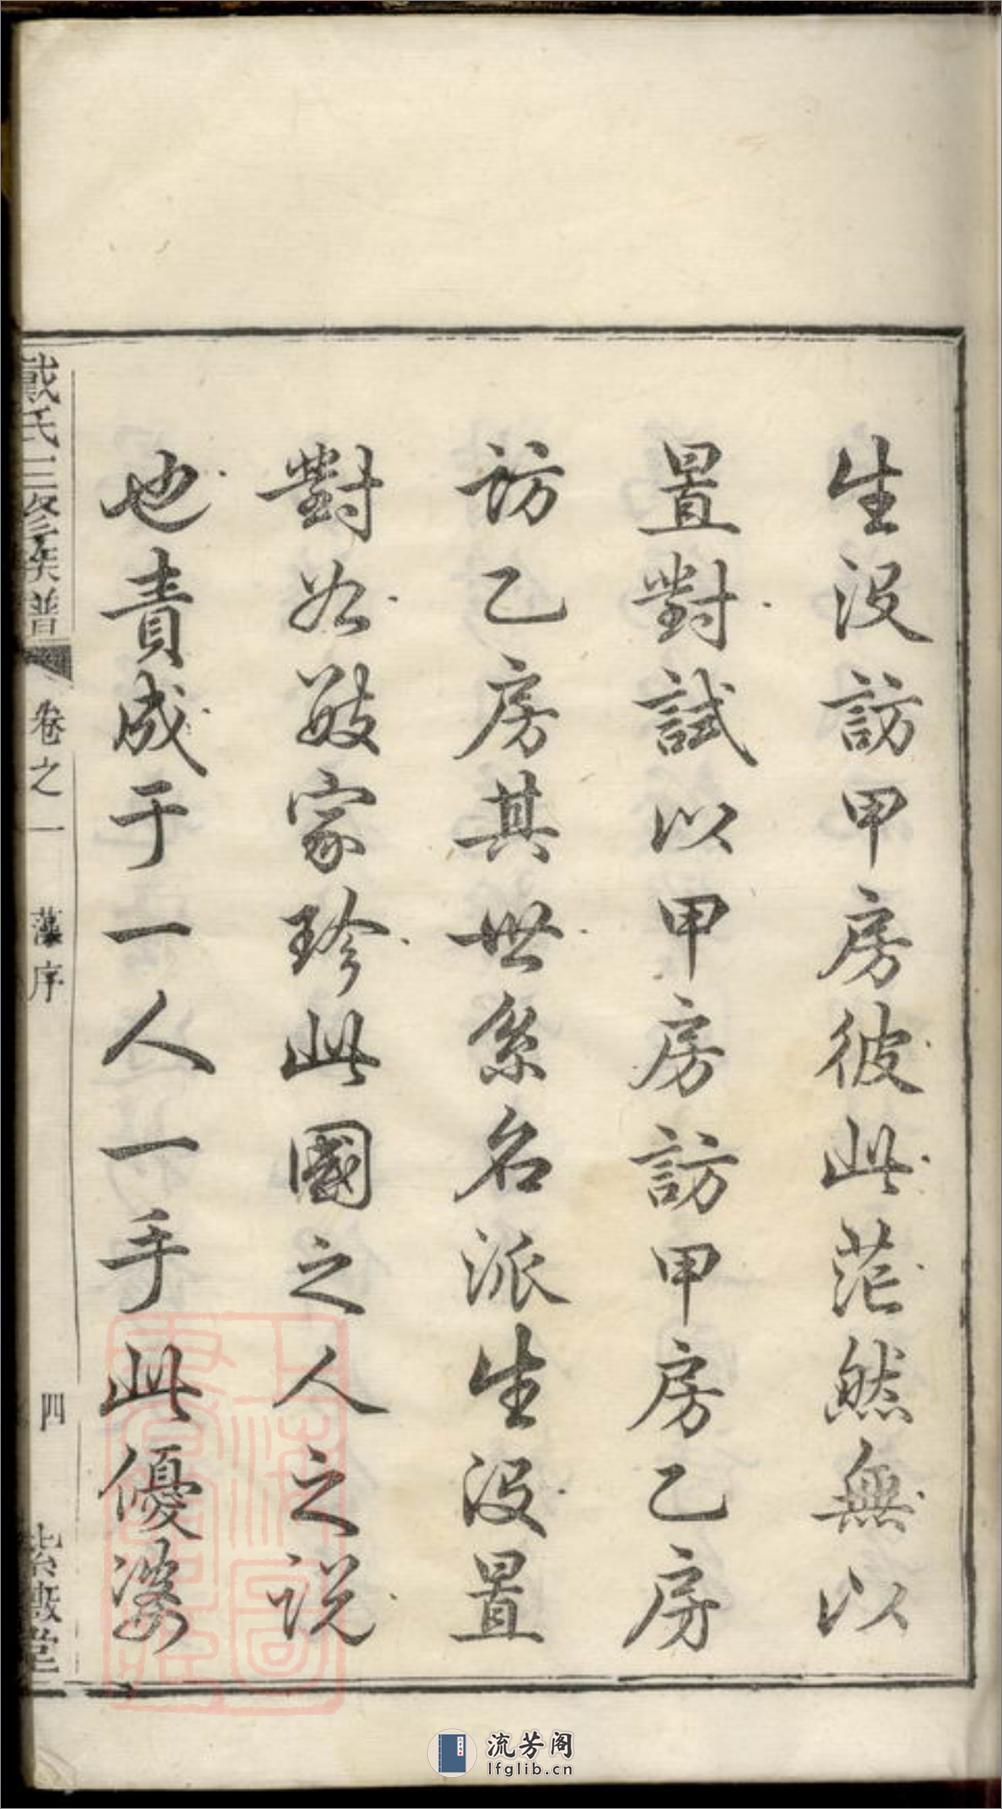 生沒訪甲房彼此茫然無以
置對試以甲房訪甲房乙房
訪乙房其世系名派生沒置
對如數家珍此國之人之説
也責成于一人一手此優婆
戴氏三修族譜
卷之一
藻序
四
紫薇堂
流芳阁
lfglib.cn